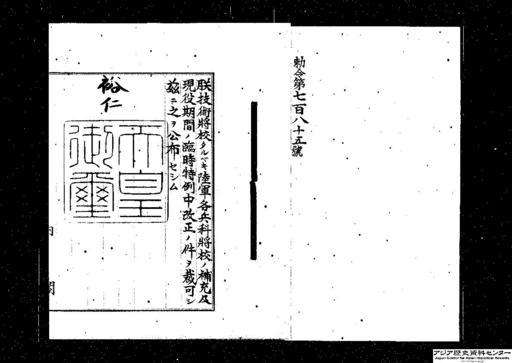 勅令第七百八十五號
朕技術將校タルベキ陸軍各兵科將校ノ補充及
現役期間ノ臨時特例中改正ノ件ヲ裁可シ
茲ニ之ヲ公布セシム
裕仁
天皇御璽
内閣
アジア歴史資料センター
Japan Center for Asian Historical Records